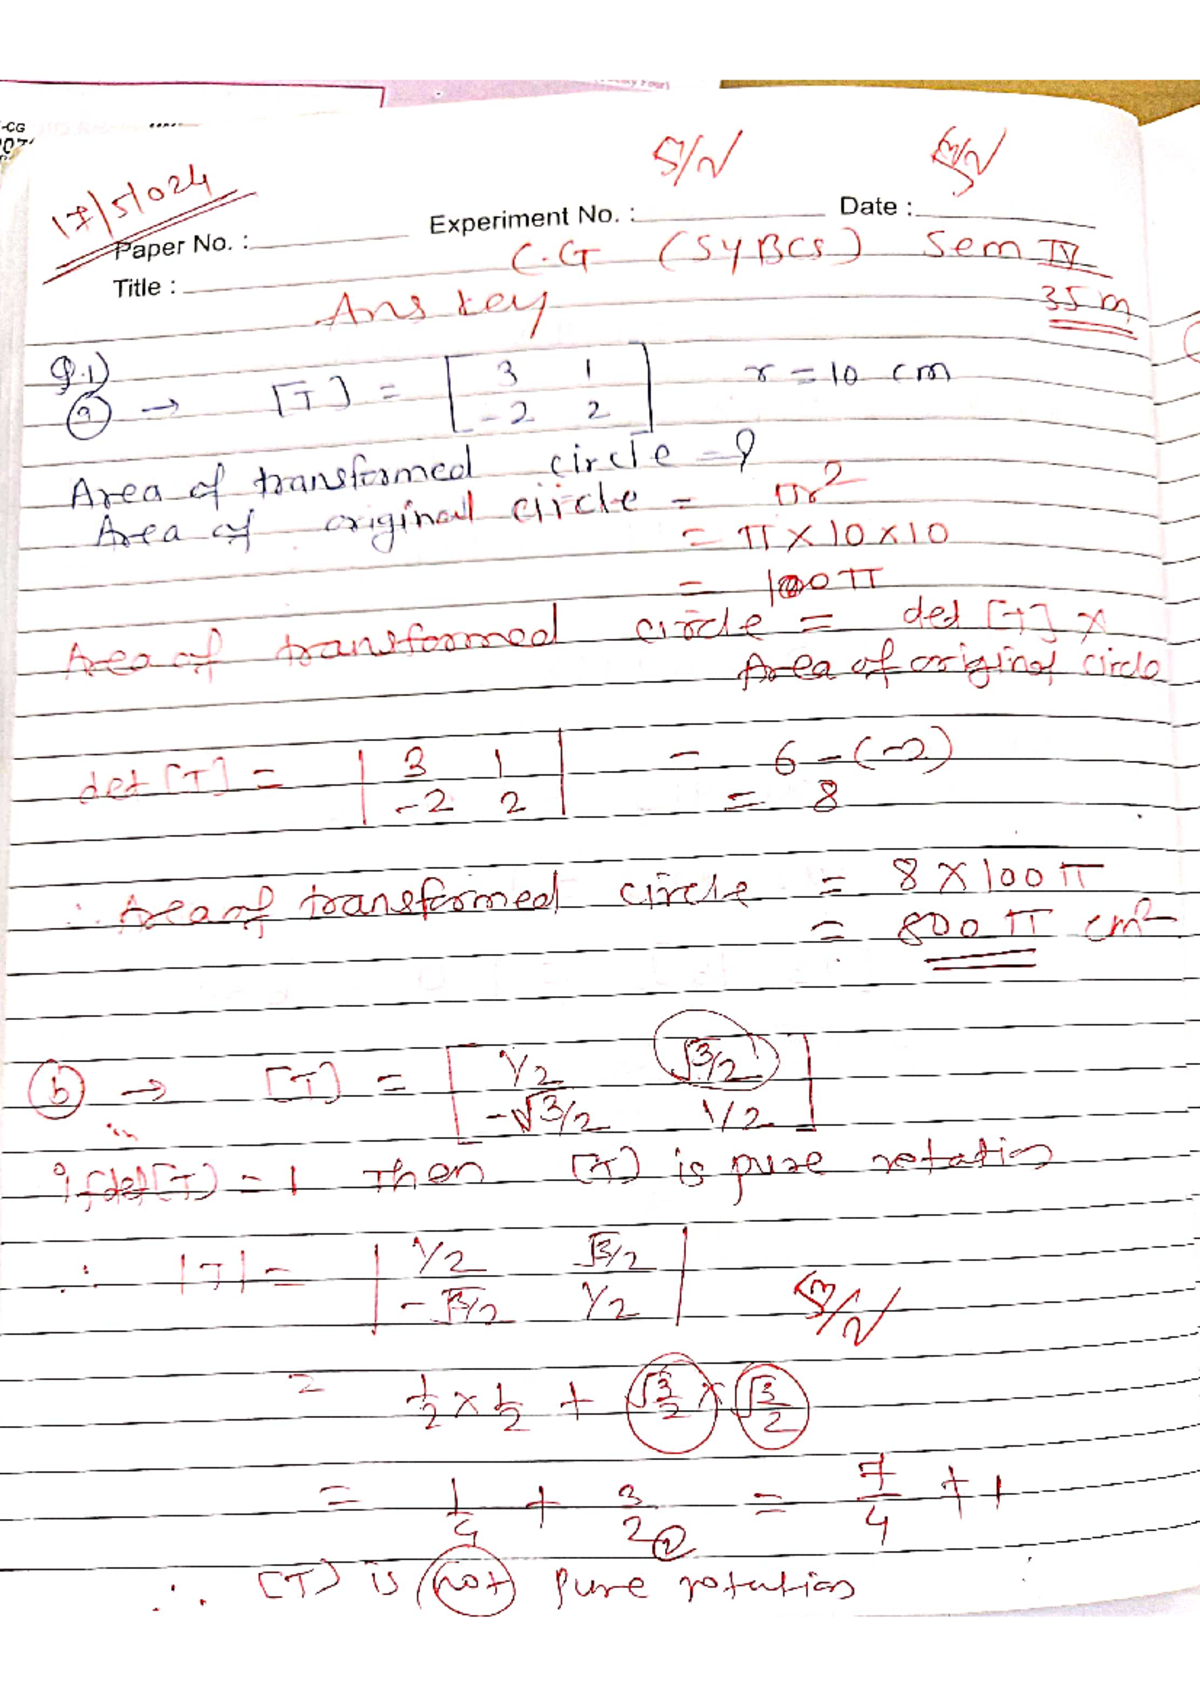 -CG
17/5/024
5/2
√3/2
Paper No. : Experiment No. : Date :
C.G (SYBCS) Sem IV
Title :
Ans key
35 m
Q.1)
a → [T] = [ 3 1
-2 2 ] r = 10 cm
Area of transformed circle = ?
Area of original circle = πr²
= π × 10 × 10
= 100 π
Area of transformed circle = det [T] ×
Area of original circle
det [T] = | 3 1 | = 6 - (-2)
| -2 2 | = 8
∴ Area of transformed circle = 8 × 100 π
= 800 π cm²
b → [T] = [ 1/2 √3/2
-√3/2 1/2 ]
if det[T] = 1 Then [T] is pure rotation
∴ |T| = | 1/2 √3/2 |
| -√3/2 1/2 |
√3/2
= 1/2 × 1/2 + √3/2 × √3/2
= 1/4 + 3/2 = 7/4 ≠ 1
∴ [T] is not pure rotation